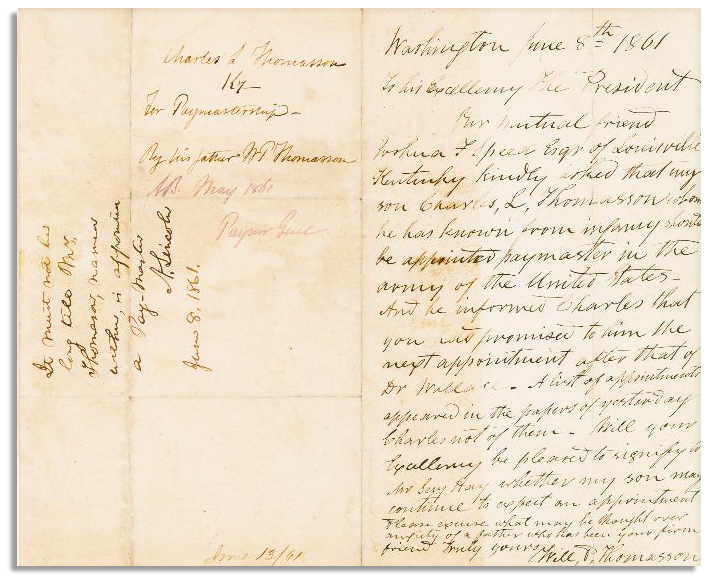 Charles L Thomasson
Ky—
For Paymastership—
By his father W P Thomasson
May 1861
Paymr Genl
It must not be
long till Mr.
Thomasson, named
within, is appointed
a Pay-Master
A. Lincoln
June 8, 1861.
June 13/61
Washington June 8th 1861
To his Excellency The President
Our mutual friend
Joshua F Speed Esqr of Louisville
Kentucky kindly asked that my
son Charles, L, Thomasson whom
he has known from infancy should
be appointed paymaster in the
army of the United States—
And he informed Charles that
you had promised to him the
next appointment after that of
Dr Wallace— A list of appointments
appeared in the papers of yesterday
Charles not of them— Will your
Excellency be pleased to signify to
Mr Secy Hay whether my son may
continue to expect an appointment
Please excuse what may be thought over
anxiety of a father who has been your firm
friend truly yours Will, P, Thomasson